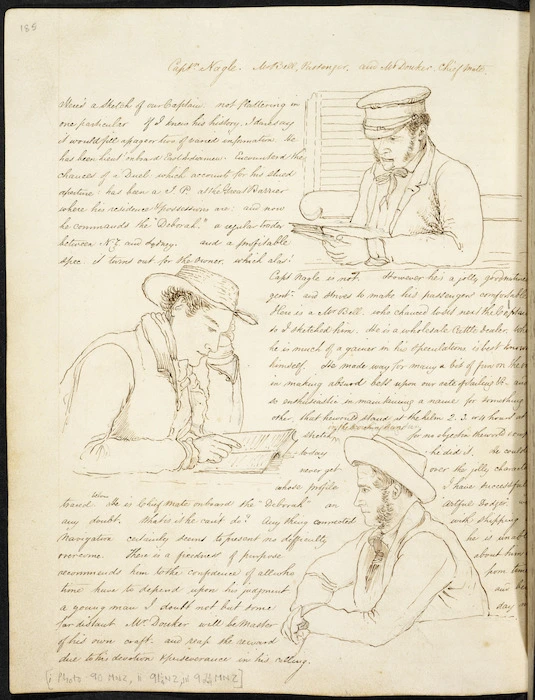 185
Captn. Nagle. Mr Bell, Passenger, and Mr Donker Chief Mate.
Here's a sketch of our Captain not flattering in
one particular If I knew his history, I dare say
it would fill a page or two of varied information. He
has been lieut on board East Indiamen: Encountered the
chances of a Duel which accounts for his
aperture: has been a J. P. at the Great Barrier
where his residence & possessions are: and now
he commands the "Deborah." a regular trader
between N.Z. and Sydney. and a profitable
spec it turns out for the owner, which alas!
Capt Nagle is not. However he's a jolly good natured
gent: and strives to make his passengers comfortable
Here is a Mr Bell, who chanced to sit near the Captain
so I sketched him. He is a wholesale Cattle dealer,
he is much of a gainer in his speculations is best known
himself. He made way for many a bit of fun on
in making absurd bets upon our rate of sailing &c. and
so enthusiastic in maintaining a name for something
other, that he would stand at the helm 2. 3. or 4 hours at
sketch for no objection the world
today he did it. he could
never get over the jolly character
whose profile I have successful
brand He is Chief Mate on board the "Deborah" an Artful Dodger
any doubt. What is it he can't do? Any thing connected with shipping
Navigation certainly seems to present no difficulty he is unable
overcome. There is a firmness of purpose about him
recommends him to the confidence of all who from time
time have to depend upon his judgment and
a young man I doubt not but some day
far distant Mr. Donker will be Master
of his own craft. and reap the reward
due to his devotion & perseverance in his calling.